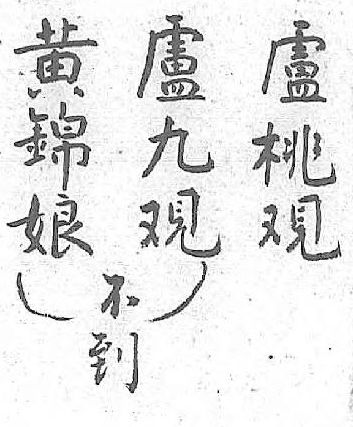 盧桃观
盧九观
黄錦娘
(不到)